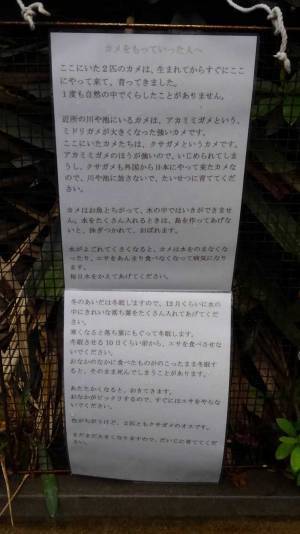 カメをもっていった人へ
ここにいた２匹のカメは、生まれてからすぐにここ
にやって来て、育ってきました。
１度も自然の中でくらしたことがありません。
近所の川や池にいるカメは、アカミミガメという、
ミドリガメが大きくなった強いカメです。
ここにいたカメたちは、クサガメというカメです。
アカミミガメのほうが強いので、いじめられてしま
うし、クサガメも外国から日本にやって来たカメな
ので、川や池に放さないで、たいせつに育ててくだ
さい。
カメはお魚とちがって、水の中ではいきができませ
ん。水をたくさん入れるときは、島を作ってあげな
いと、泳ぎつかれて、おぼれます。
水がよごれてくさくなると、カメは水をのまなくな
ったり、エサをあんまり食べなくなって病気になり
ます。
毎日水をかえてあげてください。
冬のあいだは冬眠しますので、12月くらいに水の
中にきれいな落ち葉をたくさん入れてあげてくださ
い。
寒くなると落ち葉にもぐって冬眠します。
冬眠させる１０日くらい前から、エサを食べさせな
いでください。
おなかのなかに食べたものがのこったまま冬眠す
ると、そのまま死んでしまうことがあります。
あたたかくなると、おきてきます。
おなかがビックリするので、すぐにはエサをやらな
いでください。
色がちがうけど、２匹ともクサガメのオスです。
まだまだ大きくなりますので、だいじに育ててくだ
さい。